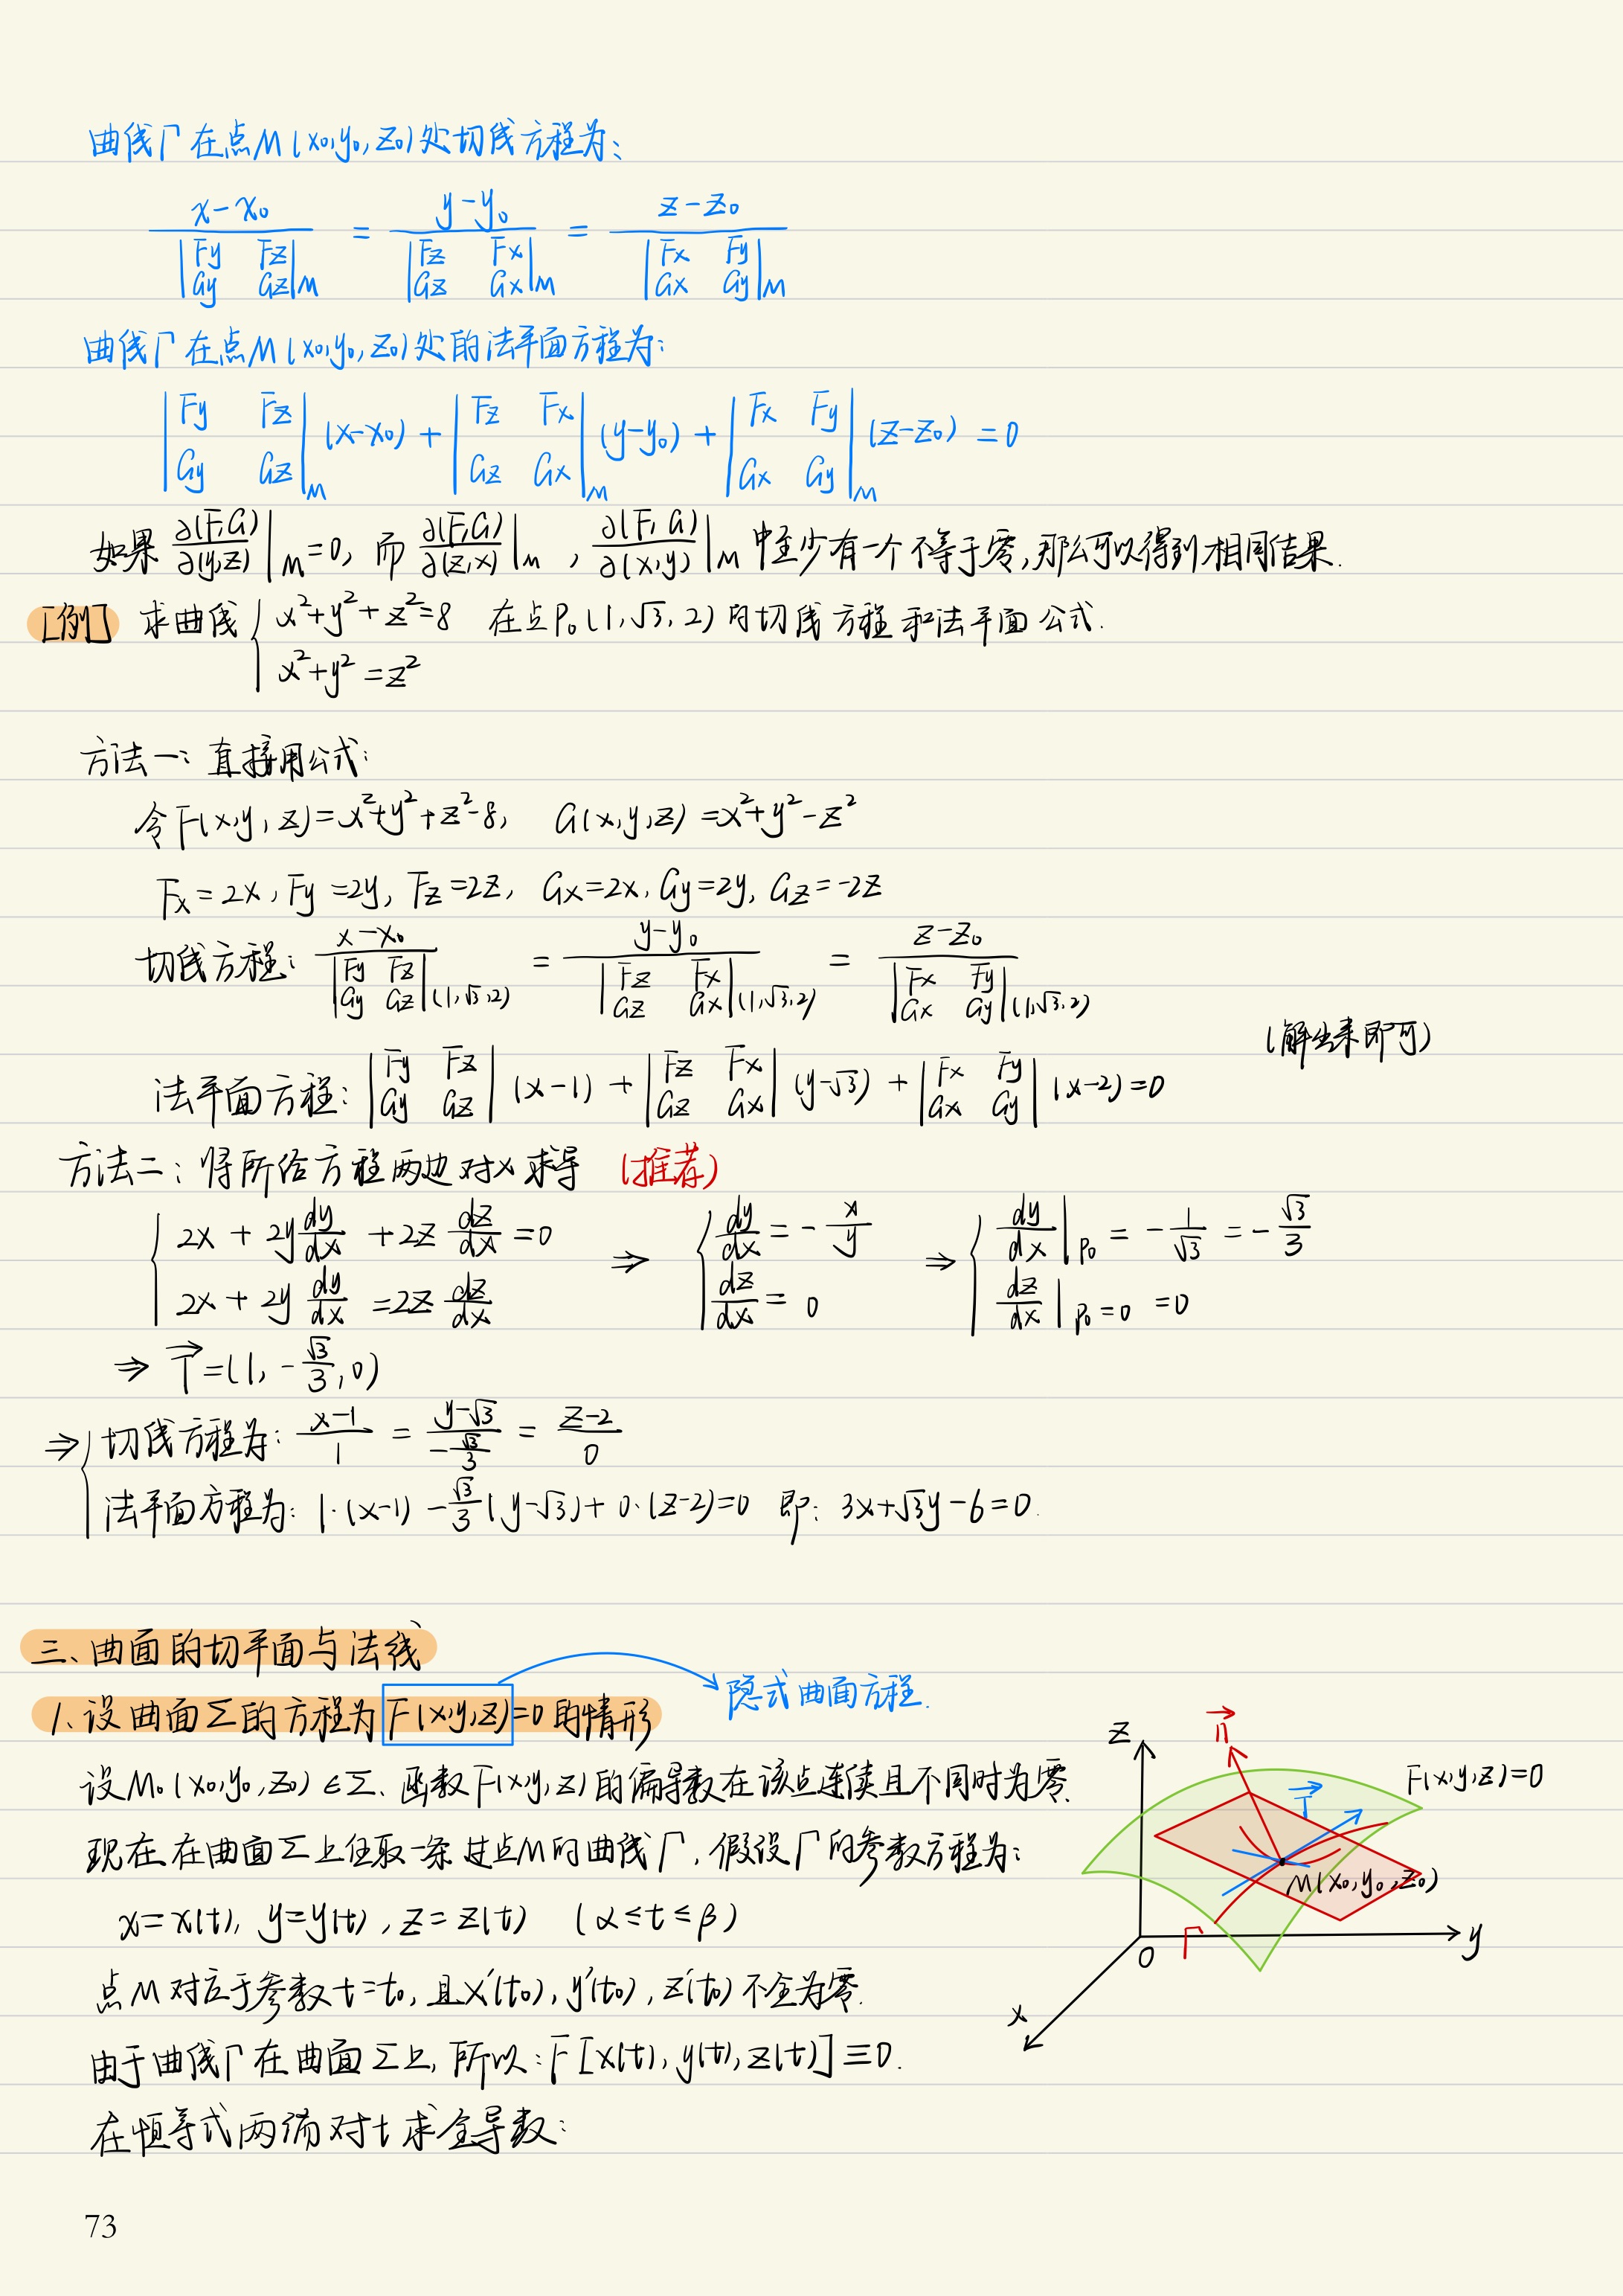 曲线Γ在点M(x₀,y₀,z₀)处切线方程为:
(x-x₀)/|Fy Fz; Gy Gz|_M = (y-y₀)/|Fz Fx; Gz Gx|_M = (z-z₀)/|Fx Fy; Gx Gy|_M
曲线Γ在点M(x₀,y₀,z₀)处的法平面方程为:
|Fy Fz; Gy Gz|_M (x-x₀) + |Fz Fx; Gz Gx|_M (y-y₀) + |Fx Fy; Gx Gy|_M (z-z₀) = 0
如果 ∂(F,G)/∂(y,z)|_M = 0, 而 ∂(F,G)/∂(z,x)|_M , ∂(F,G)/∂(x,y)|_M 中至少有一个不等于零,那么可以得到相同结果.
[例] 求曲线 { x²+y²+z²=8 在点P₀(1,√3,2)的切线方程和法平面公式.
x²+y²=z²
方法一: 直接用公式:
令F(x,y,z)=x²+y²+z²-8, G(x,y,z)=x²+y²-z²
Fx=2x, Fy=2y, Fz=2z, Gx=2x, Gy=2y, Gz=-2z
切线方程: (x-x₀)/|Fy Fz; Gy Gz|(1,√3,2) = (y-y₀)/|Fz Fx; Gz Gx|(1,√3,2) = (z-z₀)/|Fx Fy; Gx Gy|(1,√3,2)
(解出来即可)
法平面方程: |Fy Fz; Gy Gz|(x-1) + |Fz Fx; Gz Gx|(y-√3) + |Fx Fy; Gx Gy|(x-2)=0
方法二: 将所给方程两边对x求导 (推荐)
{ 2x + 2y dy/dx + 2z dz/dx = 0 ⇒ { dy/dx = -x/y ⇒ { dy/dx|P₀ = -1/√3 = -√3/3
2x + 2y dy/dx = 2z dz/dx dz/dx = 0 dz/dx|P₀=0 = 0
⇒ T⃗=(1, -√3/3, 0)
⇒ { 切线方程为: (x-1)/1 = (y-√3)/(-√3/3) = (z-2)/0
法平面方程为: 1·(x-1) - √3/3(y-√3) + 0·(z-2)=0 即: 3x+√3y-6=0.
三、曲面的切平面与法线
1、设曲面Σ的方程为F(x,y,z)=0的情形
隐式曲面方程.
设M₀(x₀,y₀,z₀)∈Σ、函数F(x,y,z)的偏导数在该点连续且不同时为零.
现在,在曲面Σ上任取一条过点M的曲线Γ, 假设Γ的参数方程为:
x=x(t), y=y(t), z=z(t) (α≤t≤β)
点M对应于参数t=t₀, 且x'(t₀), y'(t₀), z'(t₀)不全为零.
由于曲线Γ在曲面Σ上, 所以: F[x(t), y(t), z(t)]≡0.
在恒等式两端对t求全导数:
z
n⃗
T⃗
F(x,y,z)=0
M(x₀,y₀,z₀)
Γ
O
y
x
73